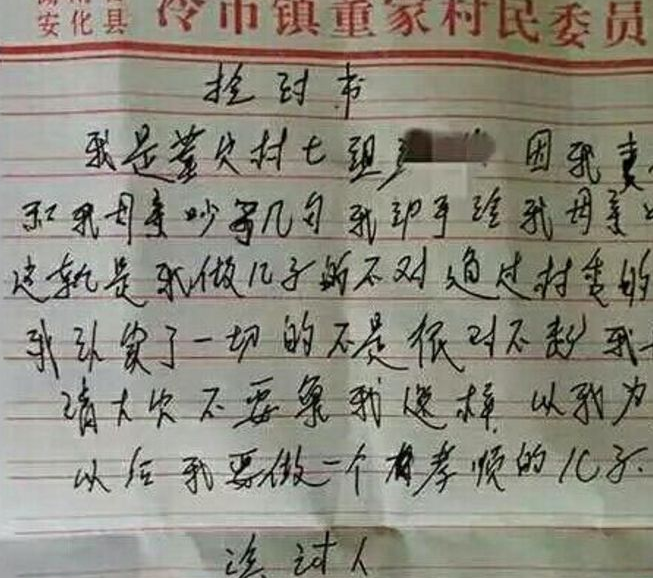 安化县 冷市镇董家村民委员
捡讨书
我是董家村七组 因我妻
和我母亲吵了几句 我动手 我母亲
这就是我做儿子的不对 通过村委的
我认 了一切的不是 很对不起 我
请大家不要 我这样 以我为
以后我要做一个有孝顺的儿子.
讨人